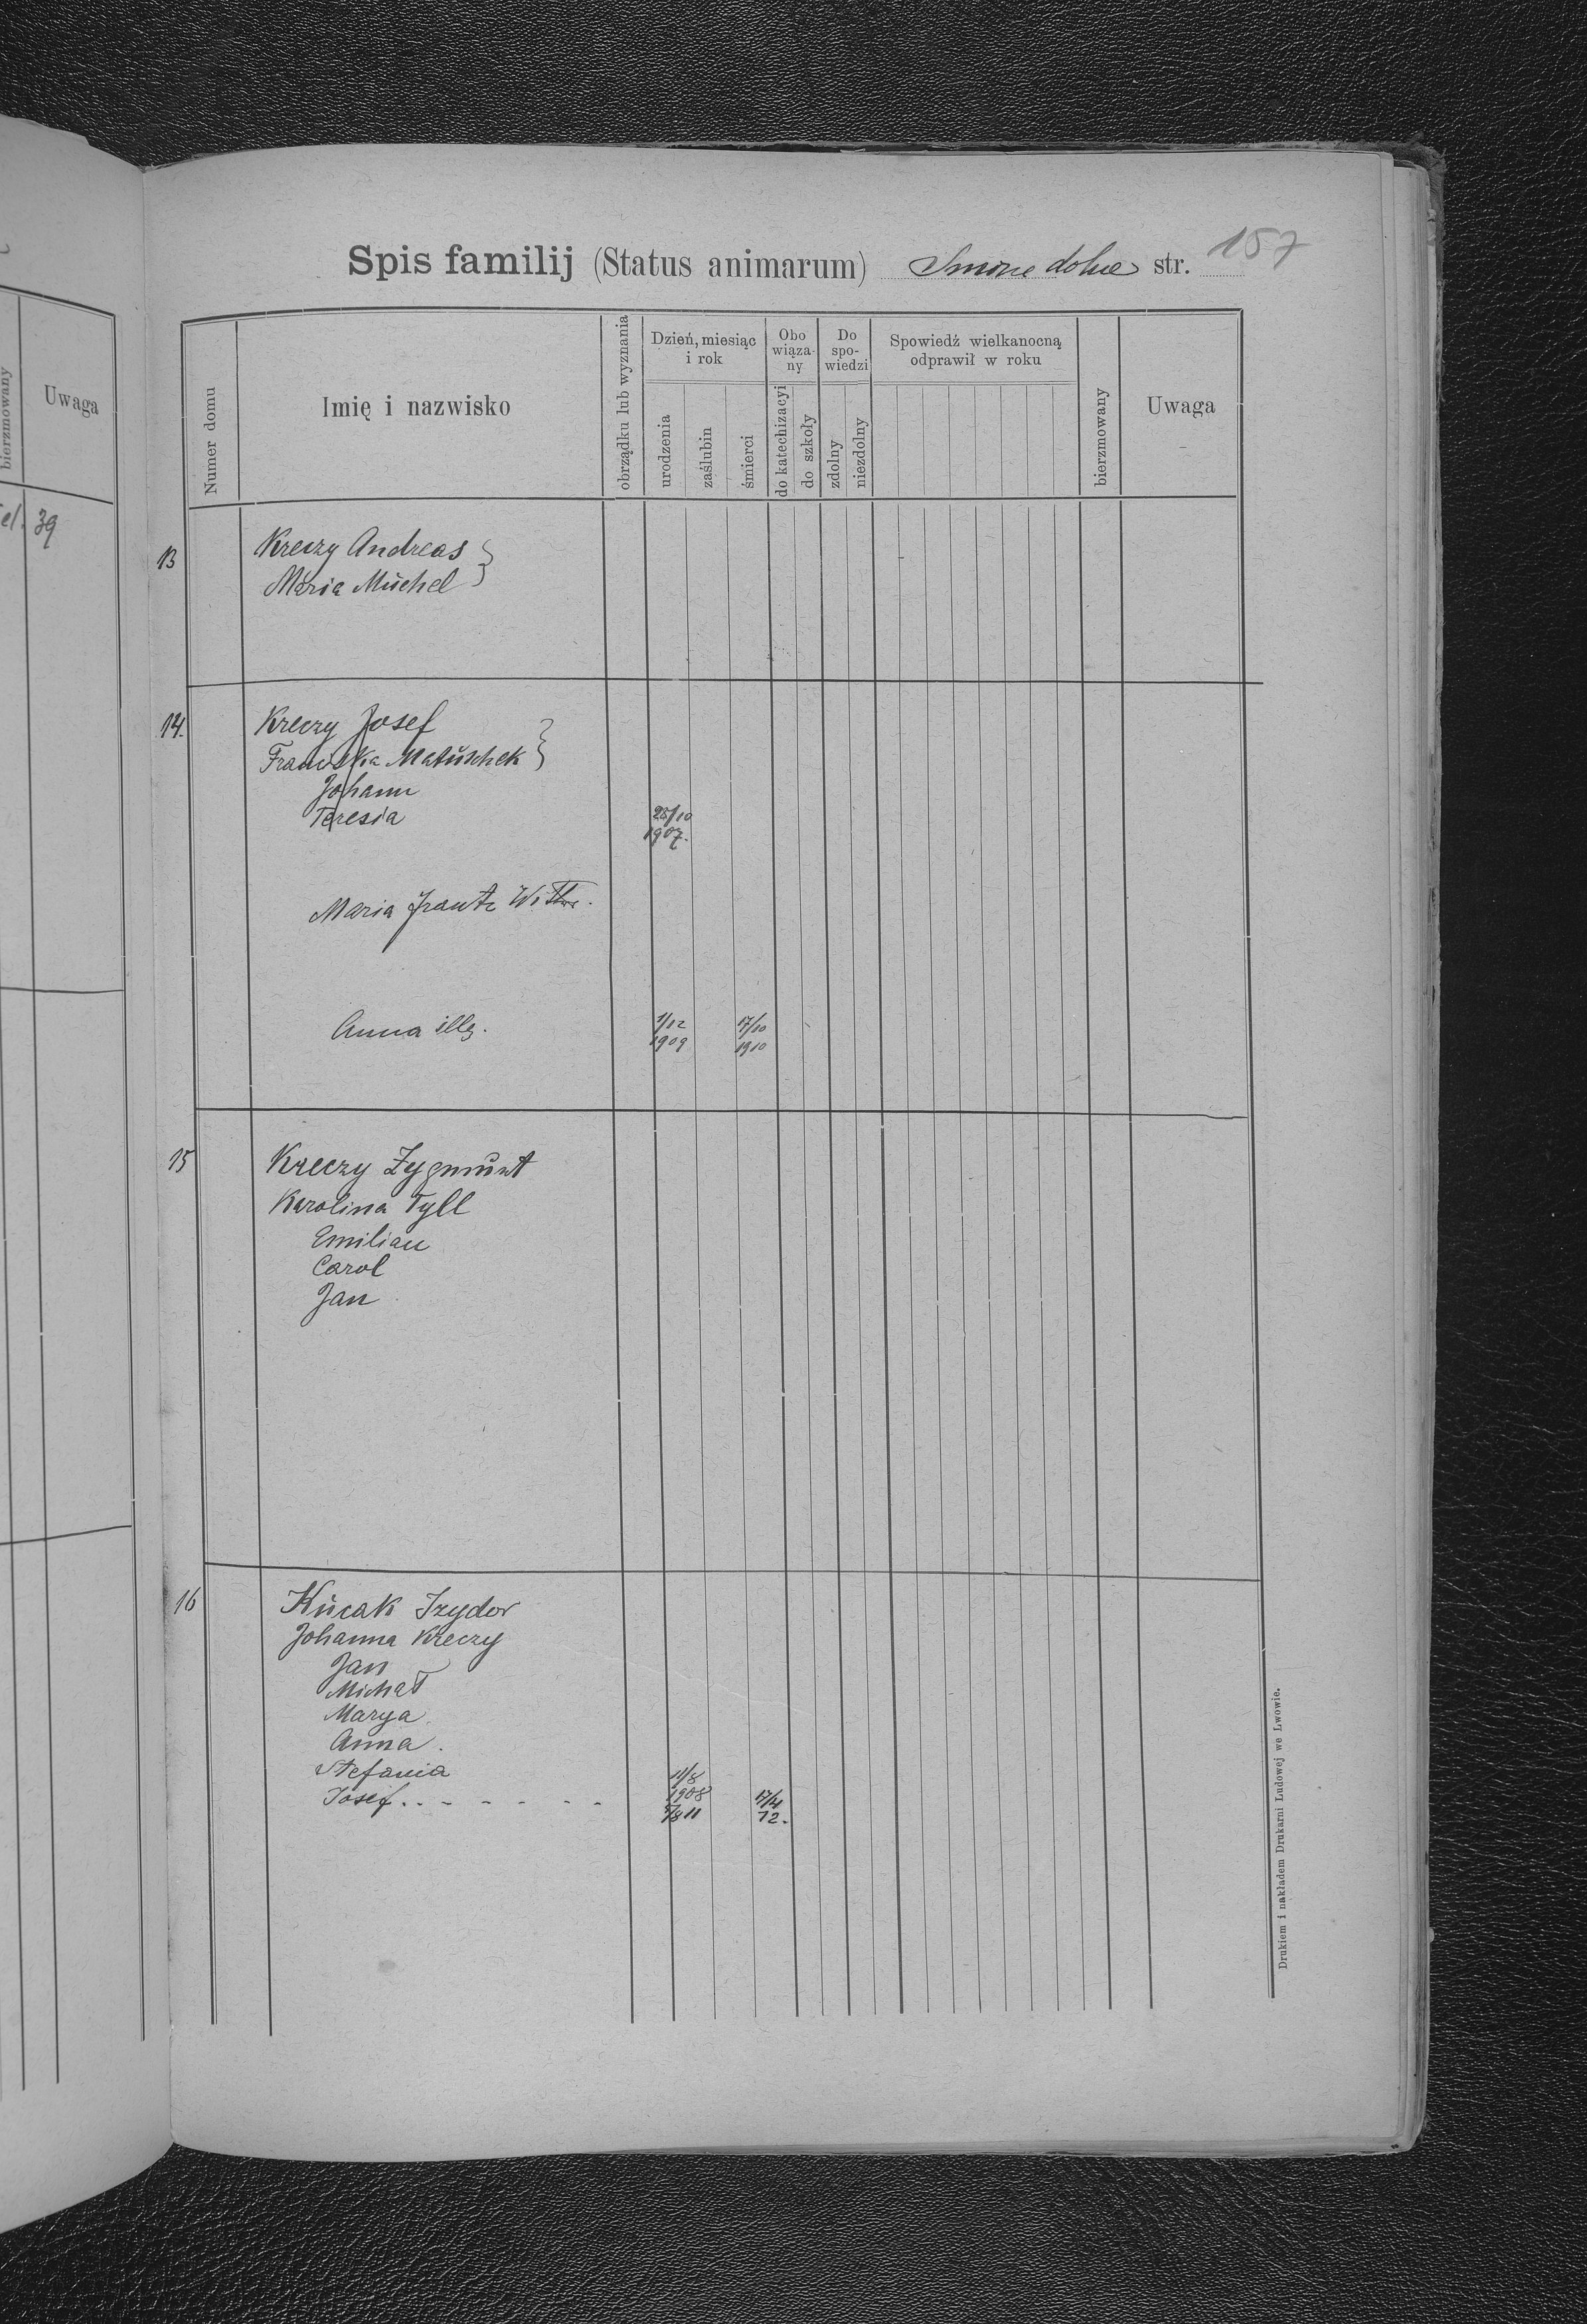 Spis familij (Status animarum) Smorze dolne str. 157
Numer domu
Imię i nazwisko
obrządku lub wyznania
Dzień, miesiąc i rok
urodzenia
zaślubin
śmierci
Obo wiąza- ny
do katechizacyi
do szkoły
Do spo- wiedzi
zdolny
niezdolny
Spowiedź wielkanocną odprawił w roku
bierzmowany
Uwaga
bierzmowany
Uwaga
39
13
Kreczy Andreas
Maria Müchel
14.
Kreczy Josef
Franciska Matuschek
Johann
Teresia 25/10 1907.
Maria
Anna illg. 1/12 1909 17/10 1910
15
Kreczy Zygmunt
Karolina Tyll
Emilian
Carol
Jan
16
Kucak Izydor
Johanna Kreczy
Jan
Michał
Marya
Anna.
Stefania 11/8 1908
Josef 17/4 12.
Drukiem i nakładem Drukarni Ludowej we Lwowie.